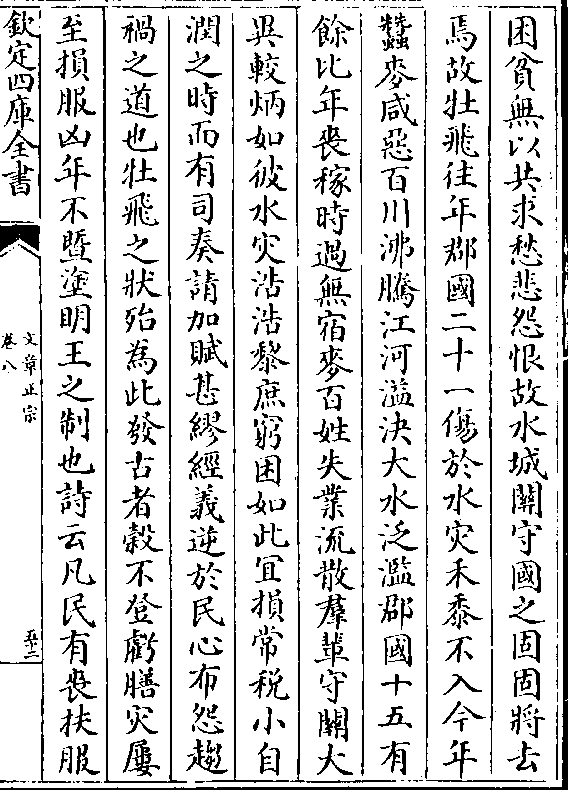 困貧無以共求愁悲怨恨故水城關守國之固固將去
焉故牡飛往年郡國二十一傷於水灾禾黍不入今年
蠶麥咸惡百川沸騰江河溢決大水泛濫郡國十五有
餘比年喪稼時過無宿麥百姓失業流散羣輩守關大
異較炳如彼水灾浩浩黎庶窮困如此宜損常稅小自
潤之時而有司奏請加賦甚繆經義逆於民心布怨趨
禍之道也牡飛之狀殆為此發古者榖不登虧膳灾屢
至損服凶年不塈塗明王之制也詩云凡民有喪扶服
欽定四庫全書
文章正宗
卷八
五十二